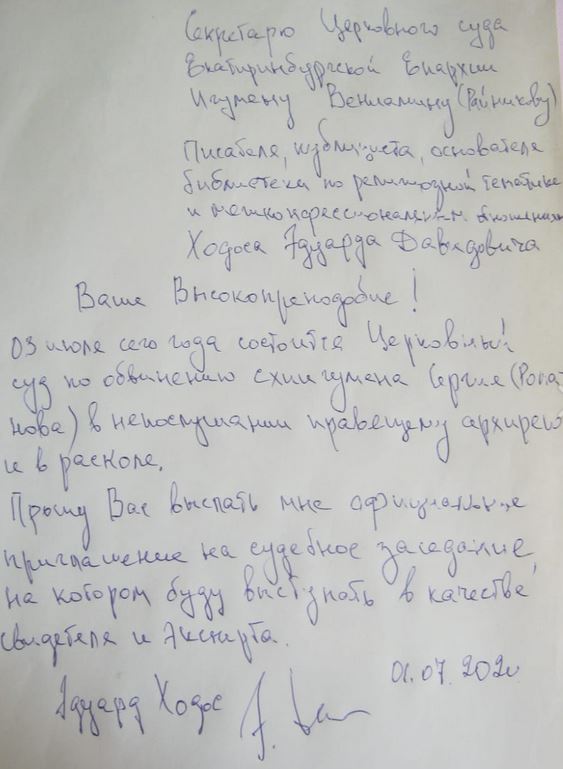 Секретарю Церковного суда
Екатиринбургской Епархии
Игумену Вениамину (Райникову)
Писателя, публициста, основателя
библиотеки по религиозной тематике
и межконфессиональным отношениям
Ходоса Эдуарда Давидовича
Ваше Высокопреподобие!
03 июля сего года состоится Церковный
суд по обвинению схиигумена Сергия (Рома-
нова) в непослушании правещему архирею
и в расколе.
Прошу Вас выслать мне официальное
приглашение на судебное заседание,
на котором буду выступать в качестве
свидетеля и эксперта.
01.07.2020
Эдуард Ходос